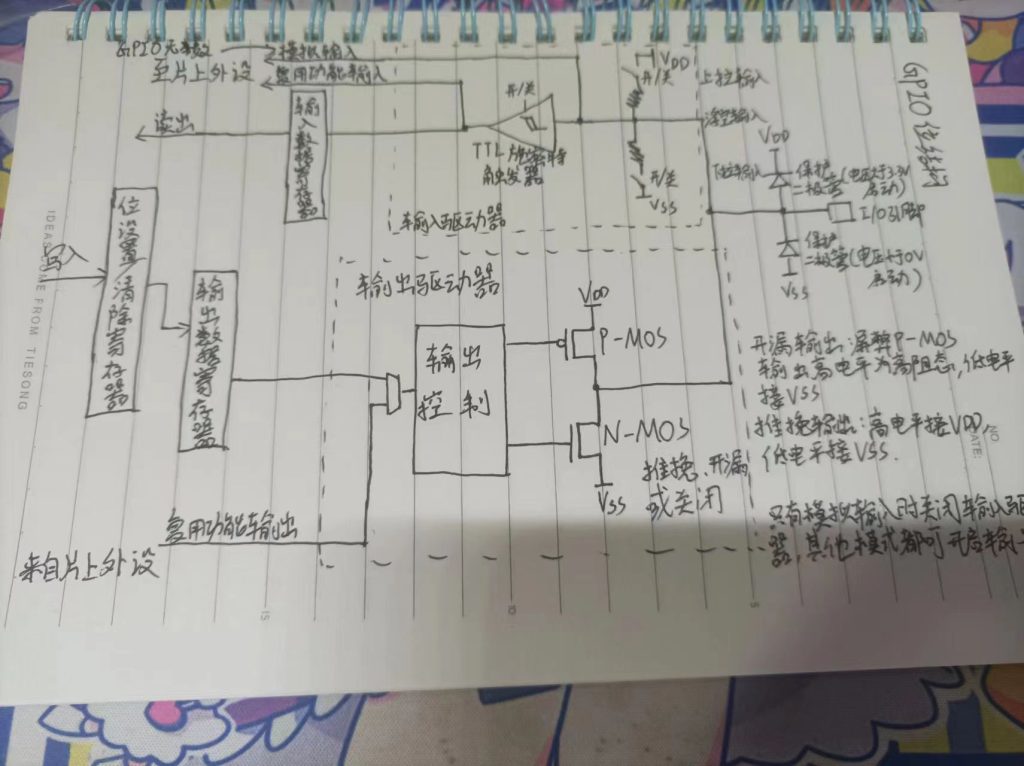 GPIO位结构
模拟输入
至片上外设
复用功能输入
读出
输入数据寄存器
开/关
TTL肖特基
触发器
输入驱动器
VDD
开/关
上拉输入
浮空输入
下拉输入
开/关
VSS
VDD
保护
二极管(电压大于3.3V
启动)
I/O引脚
保护
二极管(电压小于0V
启动)
VSS
写入
位设置/清除寄存器
输出数据寄存器
输出驱动器
输出
控制
VDD
P-MOS
N-MOS
VSS
推挽、开漏
或关闭
复用功能输出
来自片上外设
开漏输出:屏蔽P-MOS
输出高电平为高阻态,低电平
接VSS
推挽输出:高电平接VDD,
低电平接VSS.
只有模拟输入时关闭输入驱
器,其他模式都可开启输
IDEAS COME FROM TIESONG
NO
DATE:
15
10
5